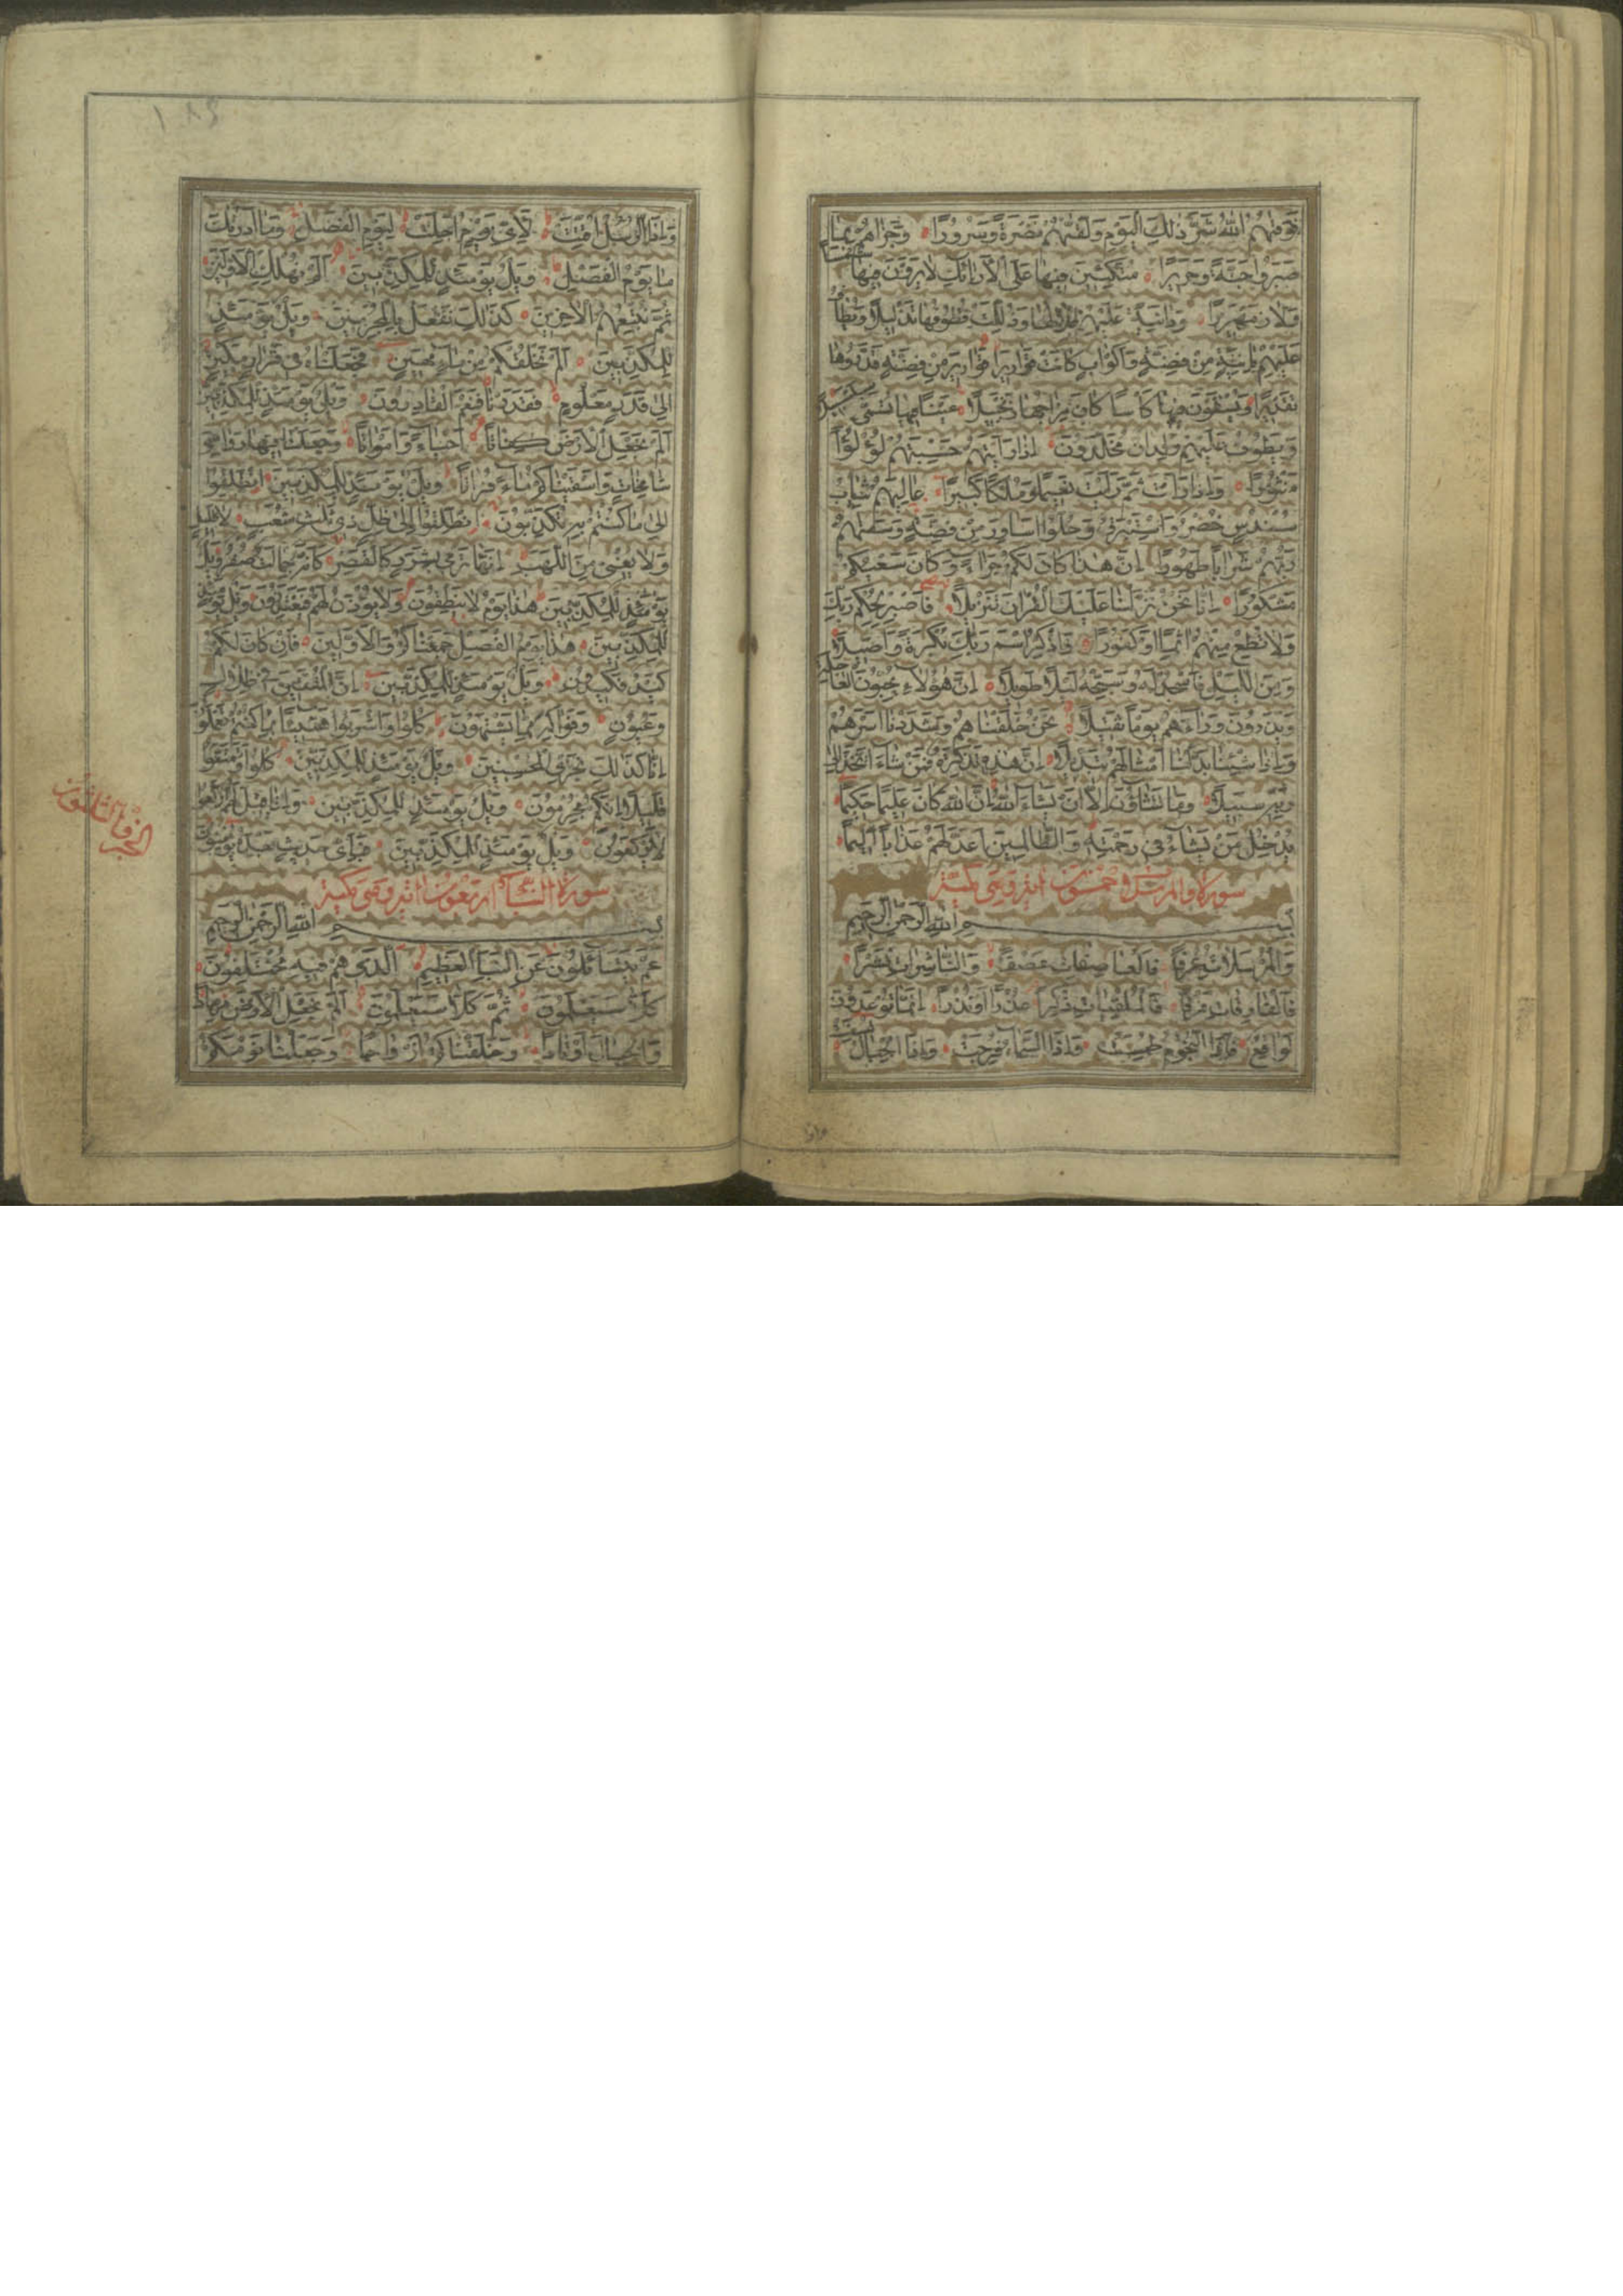 فوقیهم الله شر ذلك الیوم ولقیهم نضرة وسرورا وجزاهم بما
صبروا جنة وحریرا متكئین فیها علی الارائك لا یرون فیها شمسا
ولا زمهریرا ودانیة علیهم ظلالها وذللت قطوفها تذلیلا ویطاف
علیهم بانیة من فضة واكواب كانت قواریرا قواریر من فضة قدروها
تقدیرا ویسقون فیها كاسا كان مزاجها زنجبیلا عینا فیها تسمی سلسبیلا
ویطوف علیهم ولدان مخلدون اذا رایتهم حسبتهم لؤلؤا
منثورا واذا رایت ثم رایت نعیما وملكا كبیرا عالیهم ثیاب
سندس خضر واستبرق وحلوا اساور من فضة وسقیهم
ربهم شرابا طهورا ان هذا كان لكم جزاء وكان سعیكم
مشكورا انا نحن نزلنا علیك القران تنزیلا فاصبر لحكم ربك
ولا تطع منهم اثما او كفورا واذكر اسم ربك بكرة واصیلا
ومن اللیل فاسجد له وسبحه لیلا طویلا ان هؤلاء یحبون العاجلة
ویذرون وراءهم یوما ثقیلا نحن خلقناهم وشددنا اسرهم
واذا شئنا بدلنا امثالهم تبدیلا ان هذه تذكرة فمن شاء اتخذ الی
ربه سبیلا وما تشاؤن الا ان یشاء الله ان الله كان علیما حكیما
یدخل من یشاء فی رحمته والظالمین اعد لهم عذابا الیما
سورة والمرسلات خمسون ایة وهی مكیة
بسم الله الرحمن الرحیم
والمرسلات عرفا فالعاصفات عصفا والناشرات نشرا
فالفارقات فرقا فالملقیات ذكرا عذرا او نذرا انما توعدون
لواقع فاذا النجوم طمست واذا السماء فرجت واذا الجبال نسفت
واذا الرسل اقتت لای یوم اجلت لیوم الفصل وما ادریك
ما یوم الفصل ویل یومئذ للمكذبین الم نهلك الاولین
ثم نتبعهم الاخرین كذلك نفعل بالمجرمین ویل یومئذ
للمكذبین الم نخلقكم من ماء مهین فجعلناه فی قرار مكین
الی قدر معلوم فقدرنا فنعم القادرون ویل یومئذ للمكذبین
الم نجعل الارض كفاتا احیاء وامواتا وجعلنا فیها رواسی
شامخات واسقیناكم ماء فراتا ویل یومئذ للمكذبین انطلقوا
الی ما كنتم به تكذبون انطلقوا الی ظل ذی ثلث شعب لا ظلیل
ولا یغنی من اللهب انها ترمی بشرر كالقصر كانه جمالت صفر ویل
یومئذ للمكذبین هذا یوم لا ینطقون ولا یؤذن لهم فیعتذرون ویل یومئذ
للمكذبین هذا یوم الفصل جمعناكم والاولین فان كان لكم
كید فكیدون ویل یومئذ للمكذبین ان المتقین فی ظلال
وعیون وفواكه مما یشتهون كلوا واشربوا هنیئا بما كنتم تعملون
انا كذلك نجزی المحسنین ویل یومئذ للمكذبین كلوا وتمتعوا
قلیلا انكم مجرمون ویل یومئذ للمكذبین واذا قیل لهم اركعوا
لا یركعون ویل یومئذ للمكذبین فبای حدیث بعده یؤمنون
سورة النبا اربعون ایة وهی مكیة
بسم الله الرحمن الرحیم
عم یتساءلون عن النبا العظیم الذی هم فیه مختلفون
كلا سیعلمون ثم كلا سیعلمون الم نجعل الارض مهادا
والجبال اوتادا وخلقناكم ازواجا وجعلنا نومكم
الجزو الثلثون